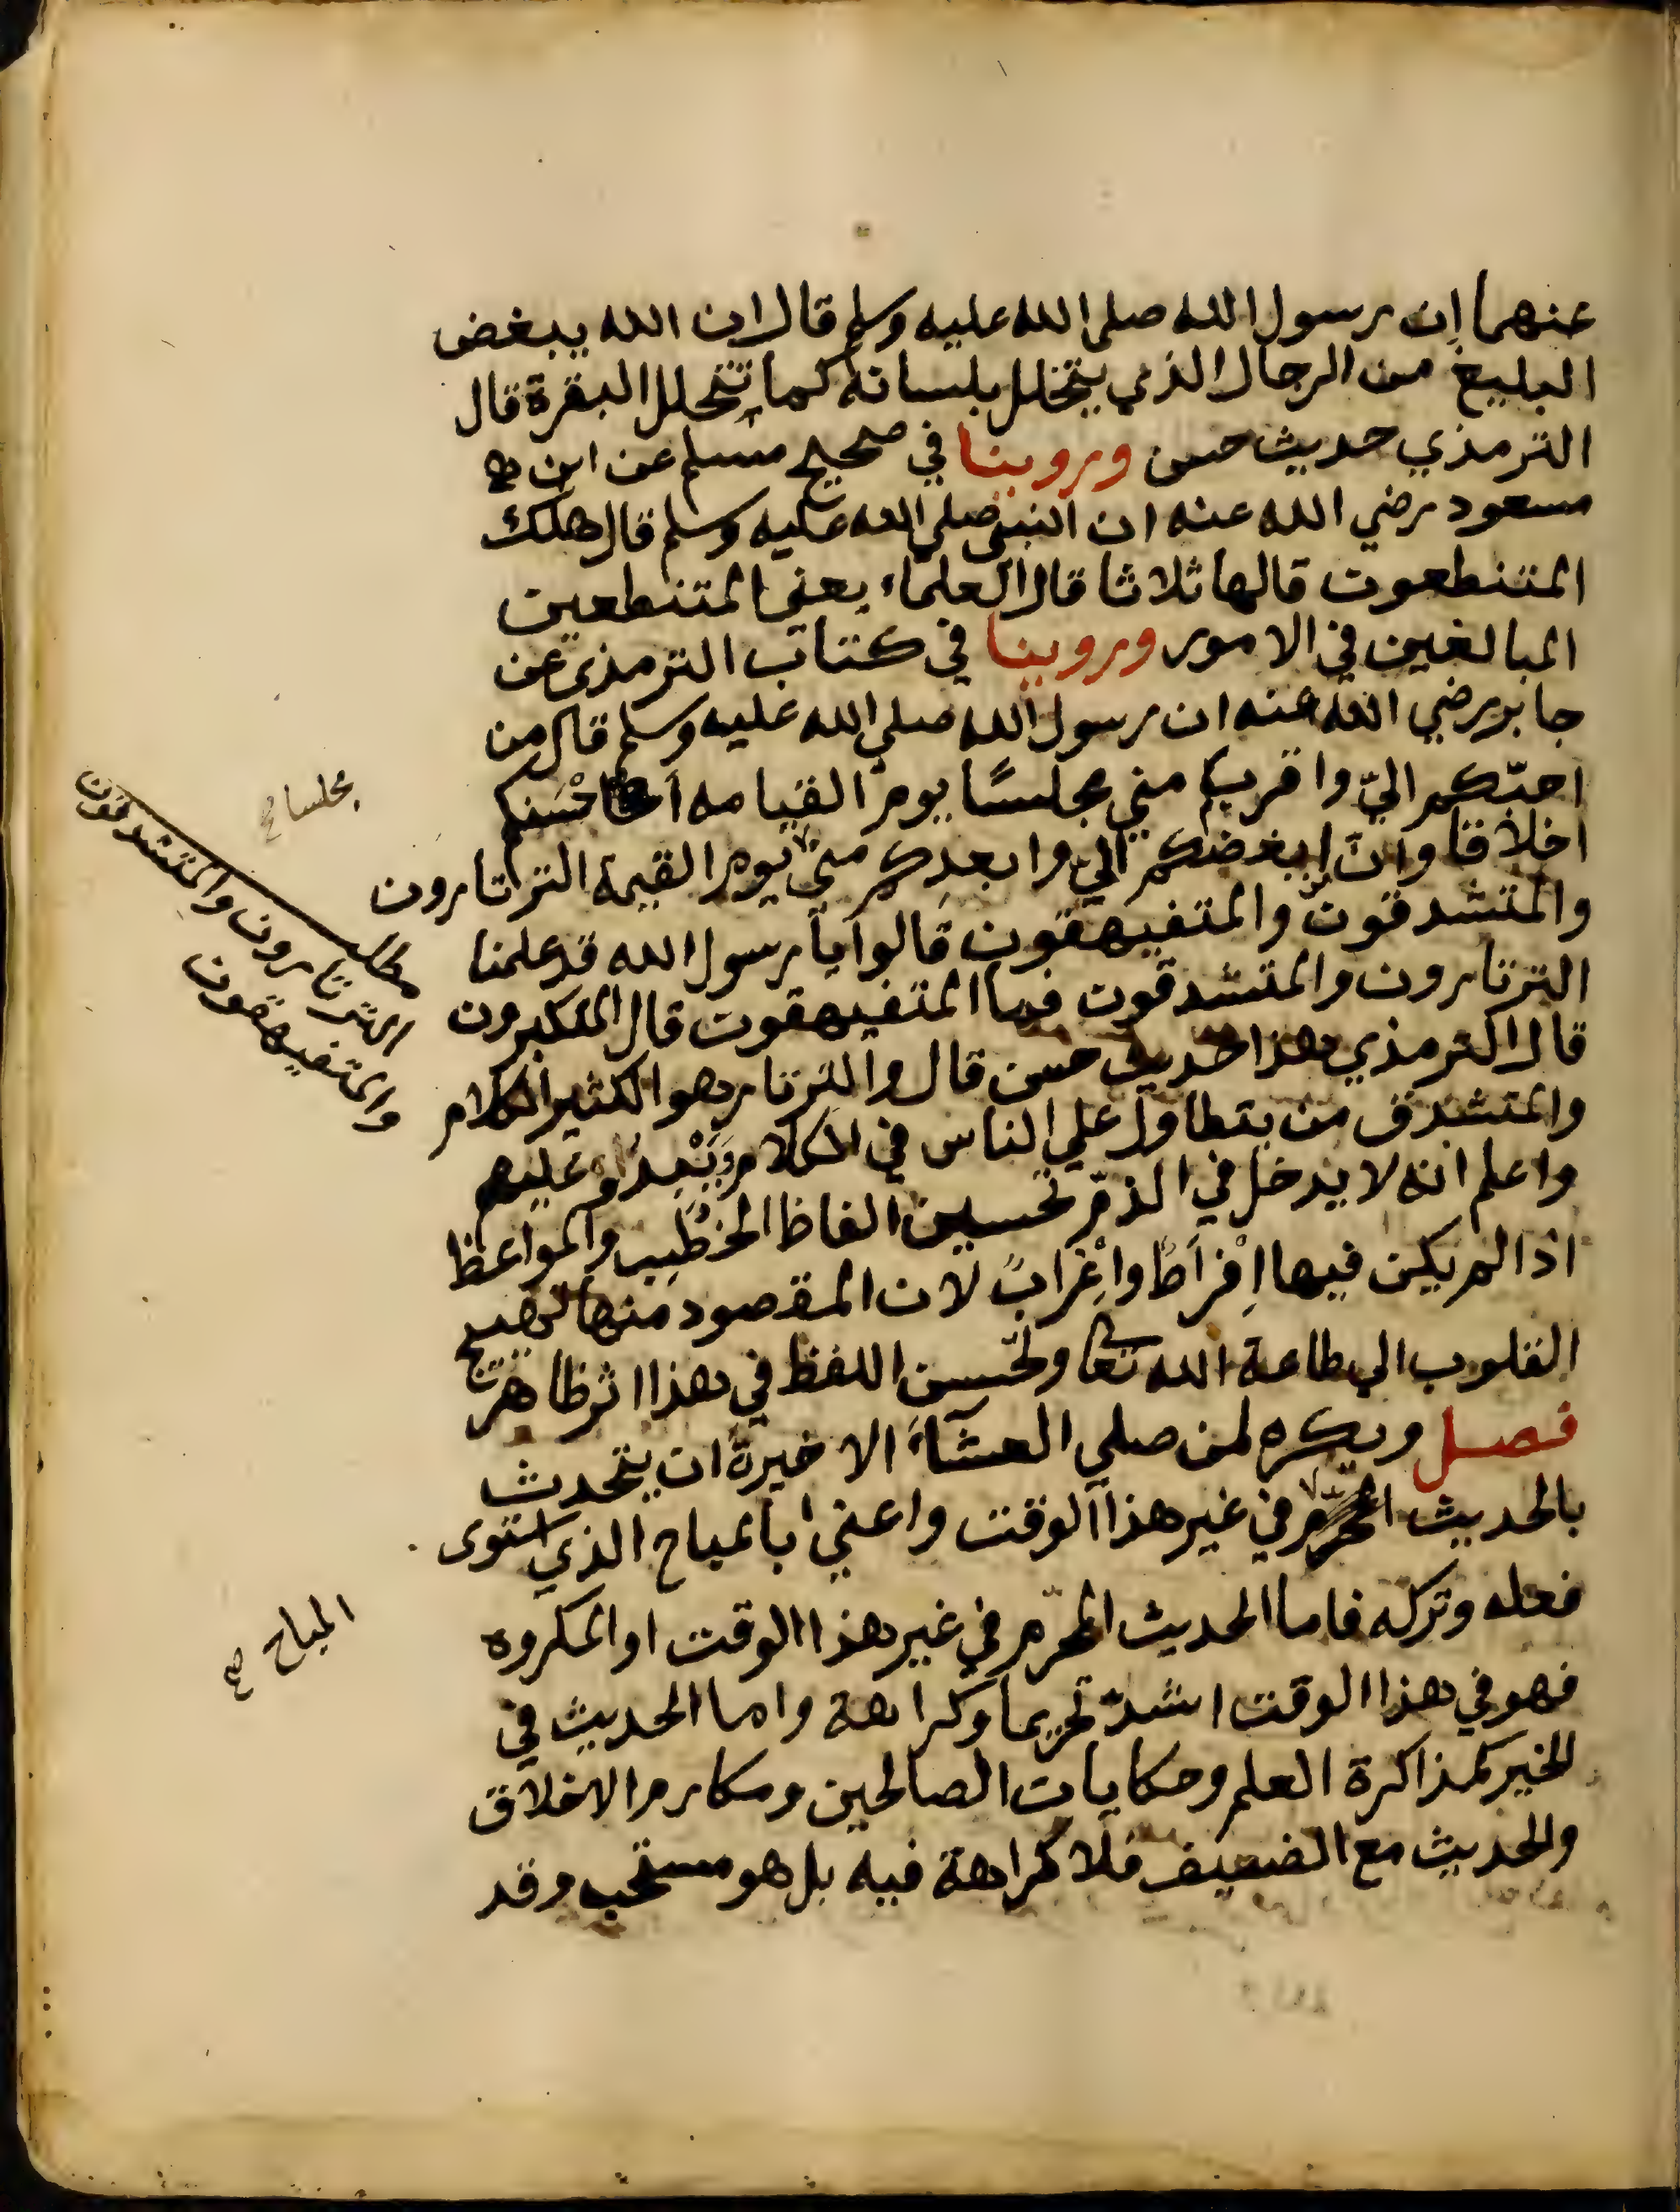 عنهما ان رسول الله صلى الله عليه وسلم قال ان الله يبغض
البليغ من الرجال الذي يتخلل بلسانه كما تتخلل البقرة قال
الترمذي حديث حسن وروينا في صحيح مسلم عن ابن
مسعود رضي الله عنه ان النبي صلى الله عليه وسلم قال هلك
المتنطعون قالها ثلاثا قال العلماء يعني المتنطعين
المبالغين في الامور وروينا في كتاب الترمذي عن
جابر رضي الله عنه ان رسول الله صلى الله عليه وسلم قال من
احبّكم اليّ واقربكم مني مجلسًا يوم القيامه احْسَنكم
اخلاقا وانّ ابغضكم اليّ وابعدكم منى يوم القيمة الترتارون
والمتشدقون والمتفيهقون قالوا يا رسول الله قد علمنا
الترتارون والمتشدقون فما المتفيهقون قال المتكبرون
قال الترمذي هذا حديث حسن قال والترتار هو الكثير الكلام
والمتشدق من يتطاول علي الناس في الكلام وَيَبْذو عليهم
واعلم انه لا يدخل في الذمّ تحسين الفاظ الخطب والمواعظ
اذا لم يكن فيها اِفْراطٌ واِغْرابٌ لان المقصود منها تهييج
القلوب الي طاعة الله تعا ولحسن اللفظ في هذا اثر ظاهر
فصل ويكره لمن صلي العشآءَ الاخيرة ان يتحدث
بالحديث المحرّم في غير هذا الوقت واعني بالمباح الذي استوى
فعله وتركه فاما الحديث المحرّم في غير هذا الوقت او المكروه
فهو في هذا الوقت اشدّ تحريما وكراهة واما الحديث في
الخير كمذاكرة العلم وحكايات الصالحين ومكارم الاخلاق
والحديث مع الضعيف فلا كراهة فيه بل هو مستحب وقد
مجلسا
الثرثارون والمتشدقون
والمتفيهقون
المباح صح